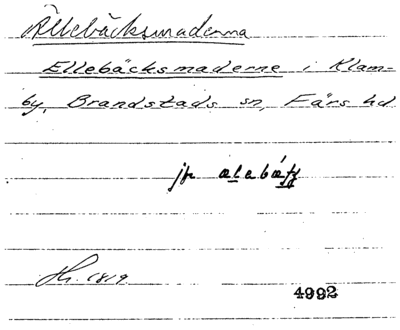 Ällebäcksmaderna
Ellebäcksmaderne i Klam-
by, Brandstads sn, Färs hd
jfr
1819
4992